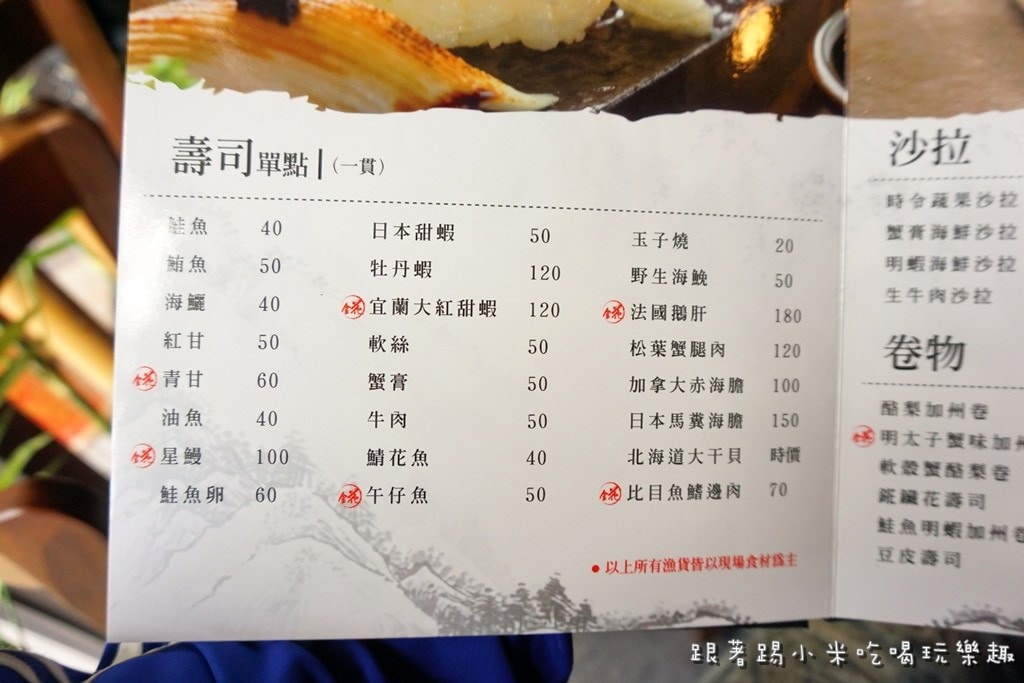 壽司單點｜(一貫)
鮭魚 40
鮪魚 50
海鱺 40
紅甘 50
青甘 60
油魚 40
星鰻 100
鮭魚卵 60
日本甜蝦 50
牡丹蝦 120
宜蘭大紅甜蝦 120
軟絲 50
蟹膏 50
牛肉 50
鯖花魚 40
午仔魚 50
玉子燒 20
野生海鮸 50
法國鵝肝 180
松葉蟹腿肉 120
加拿大赤海膽 100
日本馬糞海膽 150
北海道大干貝 時價
比目魚鰭邊肉 70
●以上所有漁貨皆以現場食材為主
沙拉
時令蔬果沙拉
蟹膏海鮮沙拉
明蝦海鮮沙拉
生牛肉沙拉
卷物
酪梨加州卷
明太子蟹味加州
軟殼蟹酪梨卷
花壽司
鮭魚明蝦加州卷
豆皮壽司
跟著踢小米吃喝玩樂趣